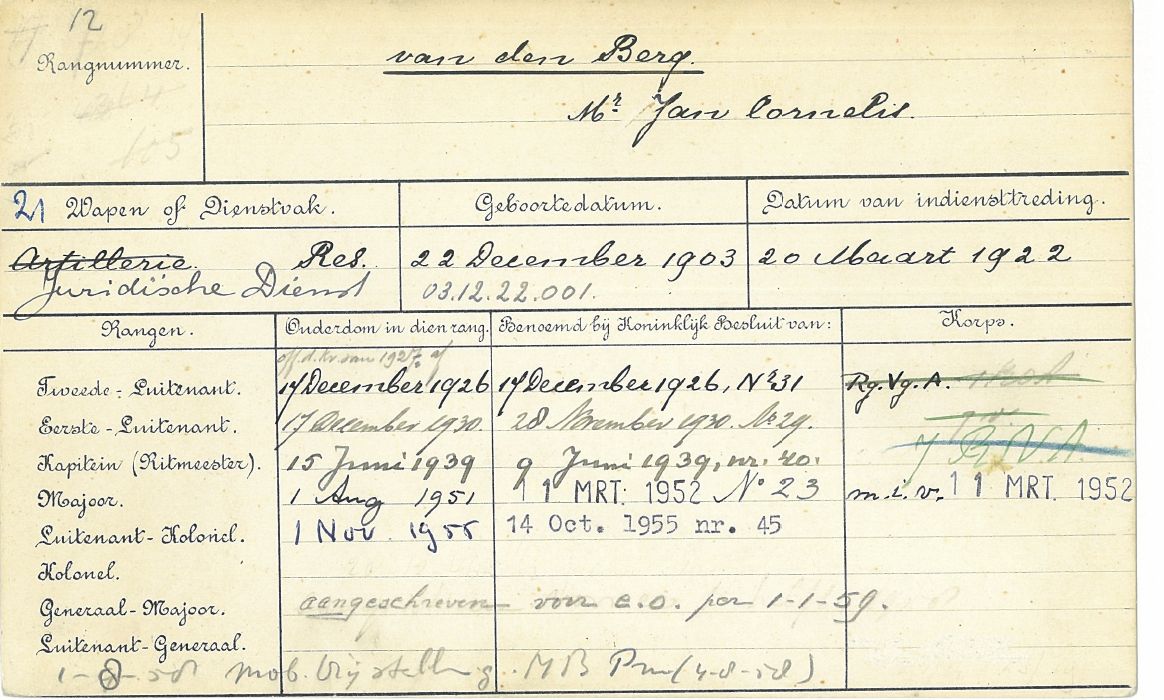 12
Rangnummer.
van den Berg.
Mr Jan Cornelis.
105
21 Wapen of Dienstvak.
Geboortedatum.
Datum van indiensttreding.
Artillerie. Res.
22 December 1903
20 Maart 1922
Juridische Dienst
03.12.22.001.
Rangen.
Ouderdom in dien rang.
Benoemd bij Koninklijk Besluit van:
Korps.
Tweede-Luitenant.
17 December 1926
17 December 1926, Nr 31
Rg.Vg.A.
Eerste-Luitenant.
17 December 1930.
28 November 1930. No 29.
Kapitein (Ritmeester).
15 Juni 1939
9 Juni 1939, nr. 40.
Majoor.
1 Aug 1951
11 MRT. 1952 No 23
m.i.v. 11 MRT. 1952
Luitenant-Kolonel.
1 Nov. 1955
14 Oct. 1955 nr. 45
Kolonel.
Generaal-Majoor.
aangeschreven voor e.o. per 1-1-59.
Luitenant-Generaal.
1-8-58 mob. Vrijstelling. MB (4-8-58)